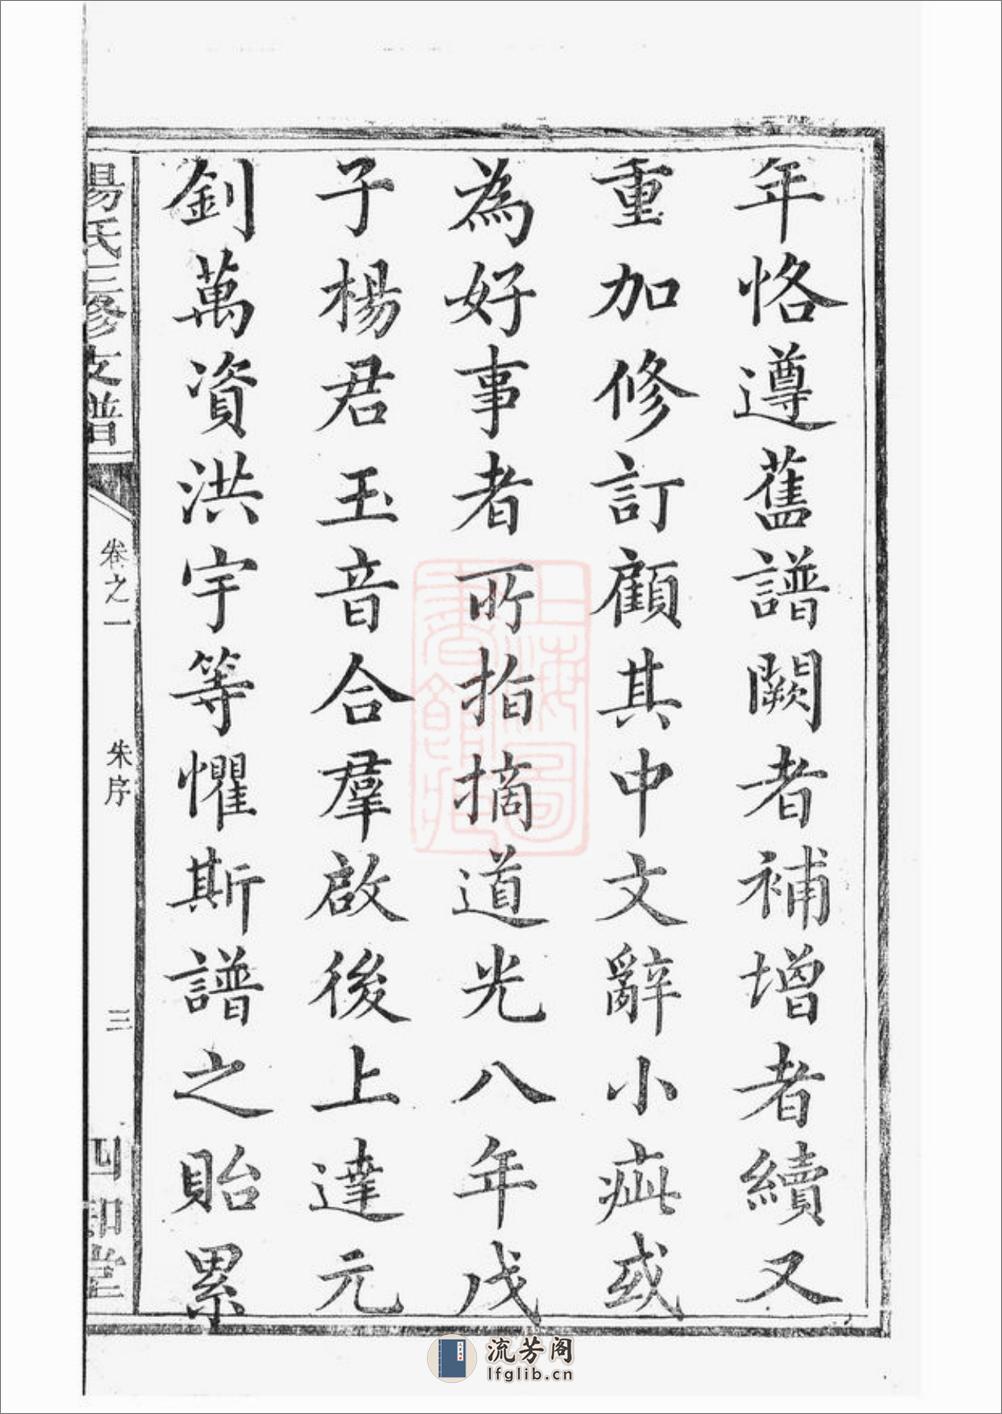 年恪遵舊譜闕者補增者續又
重加修訂顧其中文辭小疵或
為好事者所指摘道光八年戊
子楊君玉音合羣啟後上達元
釗萬資洪宇等懼斯譜之貽累
楊氏三修支譜
卷之一
朱序
三
四知堂
上海圖書館藏
流芳阁
lfglib.cn